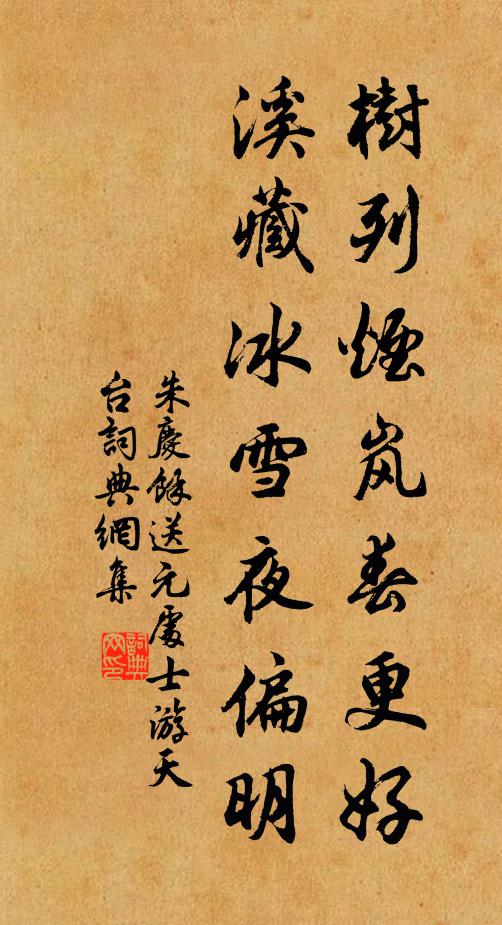 樹列煙岚春更好
溪藏冰雪夜偏明
朱慶餘送元處士游天
台詞典網集
詞典網印